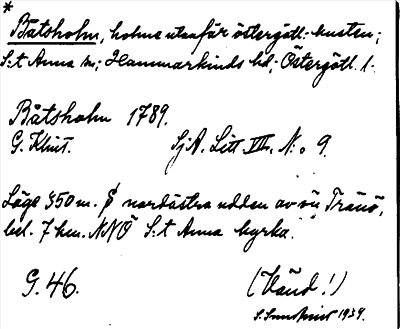 *
Båtsholm, holme utanför östergötl. kusten;
S:t Anna sn; Hammarkinds hd; Östergötl. l.
Båtsholm 1789.
G. Klint. SjA. Litt VIII. No 9.
Läge 350 m. S nordöstra udden av ön Tränö,
bel. 7 km. NNÖ S:t Anna kyrka.
G. 46. (Vänd!)
1939.